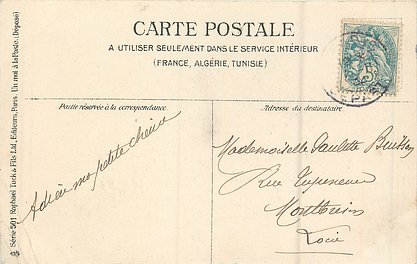 CARTE POSTALE
A UTILISER SEULEMENT DANS LE SERVICE INTÉRIEUR
(FRANCE, ALGÉRIE, TUNISIE)
Série 501 Raphael Tuck & Fils Ltd, Editeurs, Paris. Un mot à la Poste. (Déposé)
Partie réservée à la correspondance
Adresse du destinataire
ma petite
Mademoiselle Paulette
Rue
Loire
5